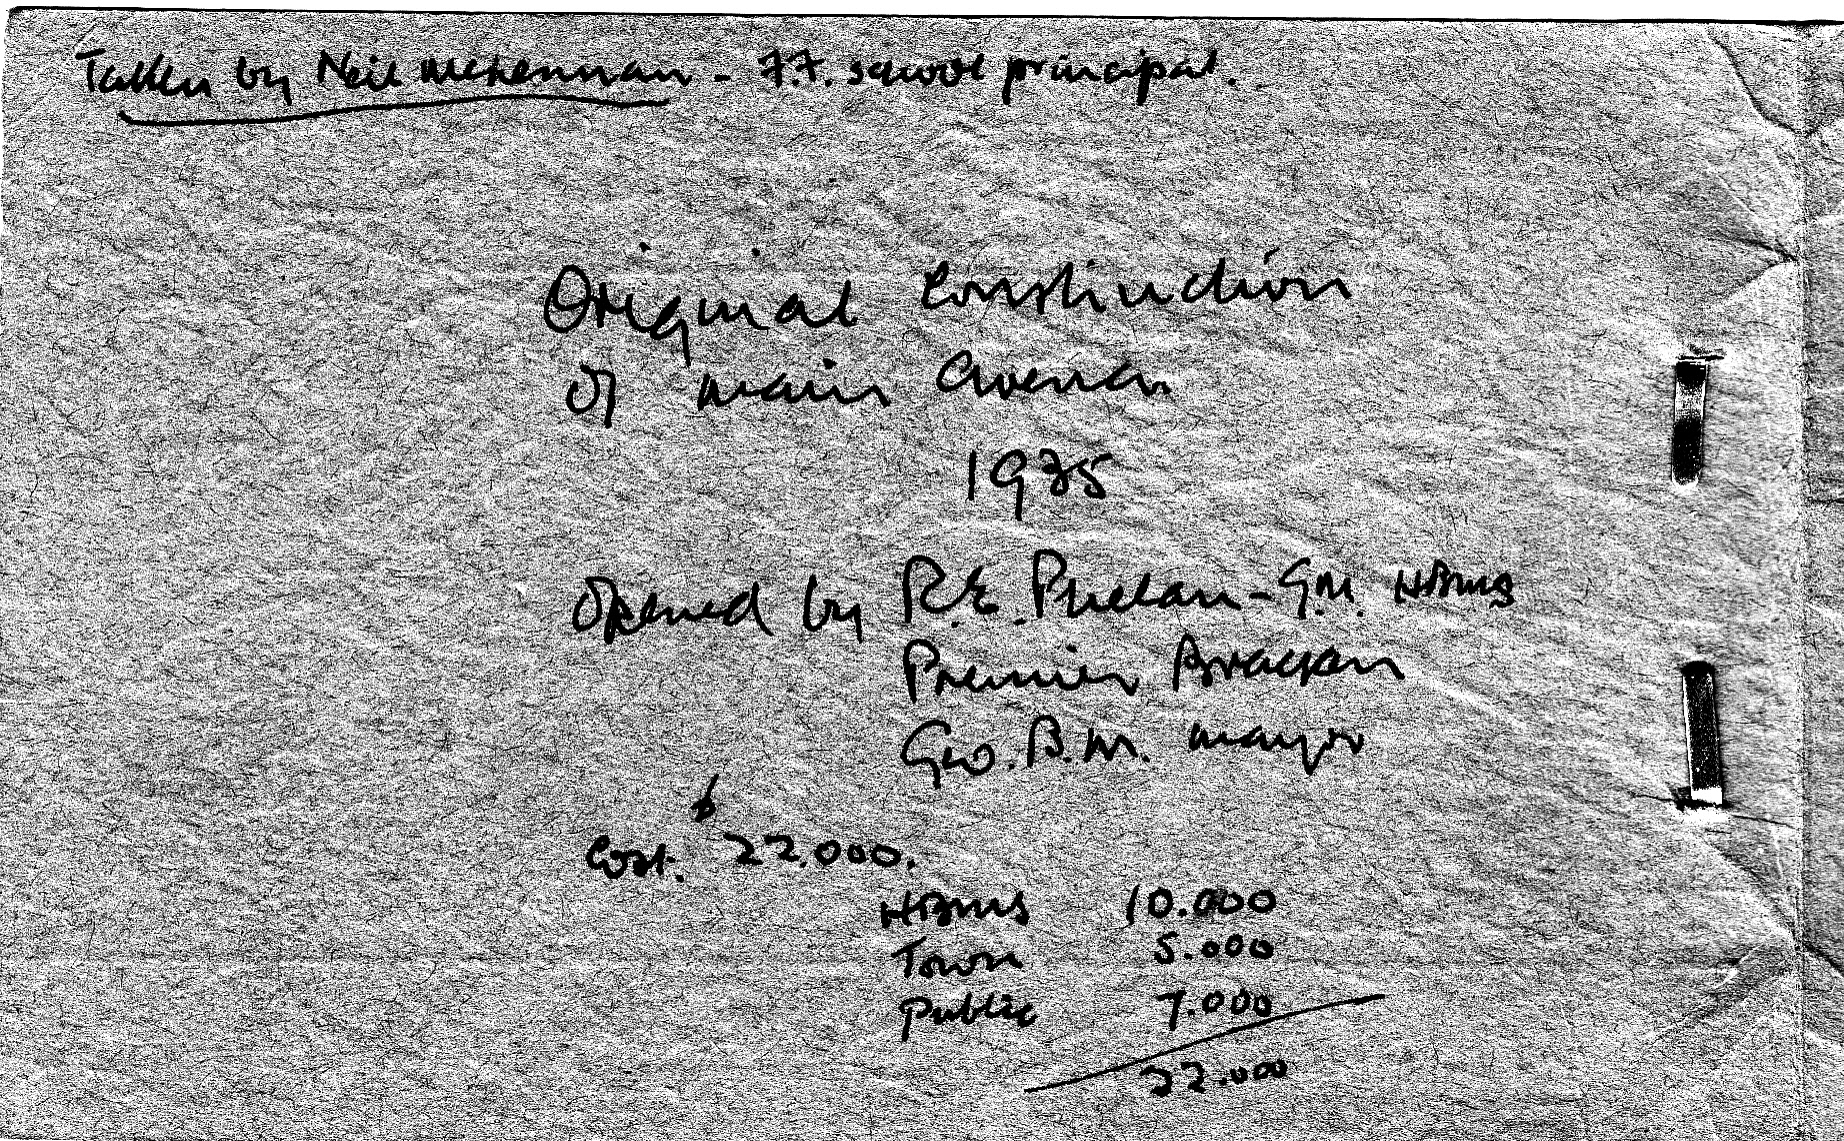 Taken by Neil McKennan - F.F. school principal.
Original Construction
of main Arena.
1935
Opened by R.E. Phelan - G.M. HBMS
Premier Bracken
Geo. B. M. Mayor
Cost. 22.000.
HBMS 10.000
Town 5.000
Public 7.000
22.000